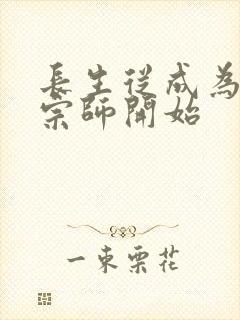 長生從成為
宗師開始
一束栗花